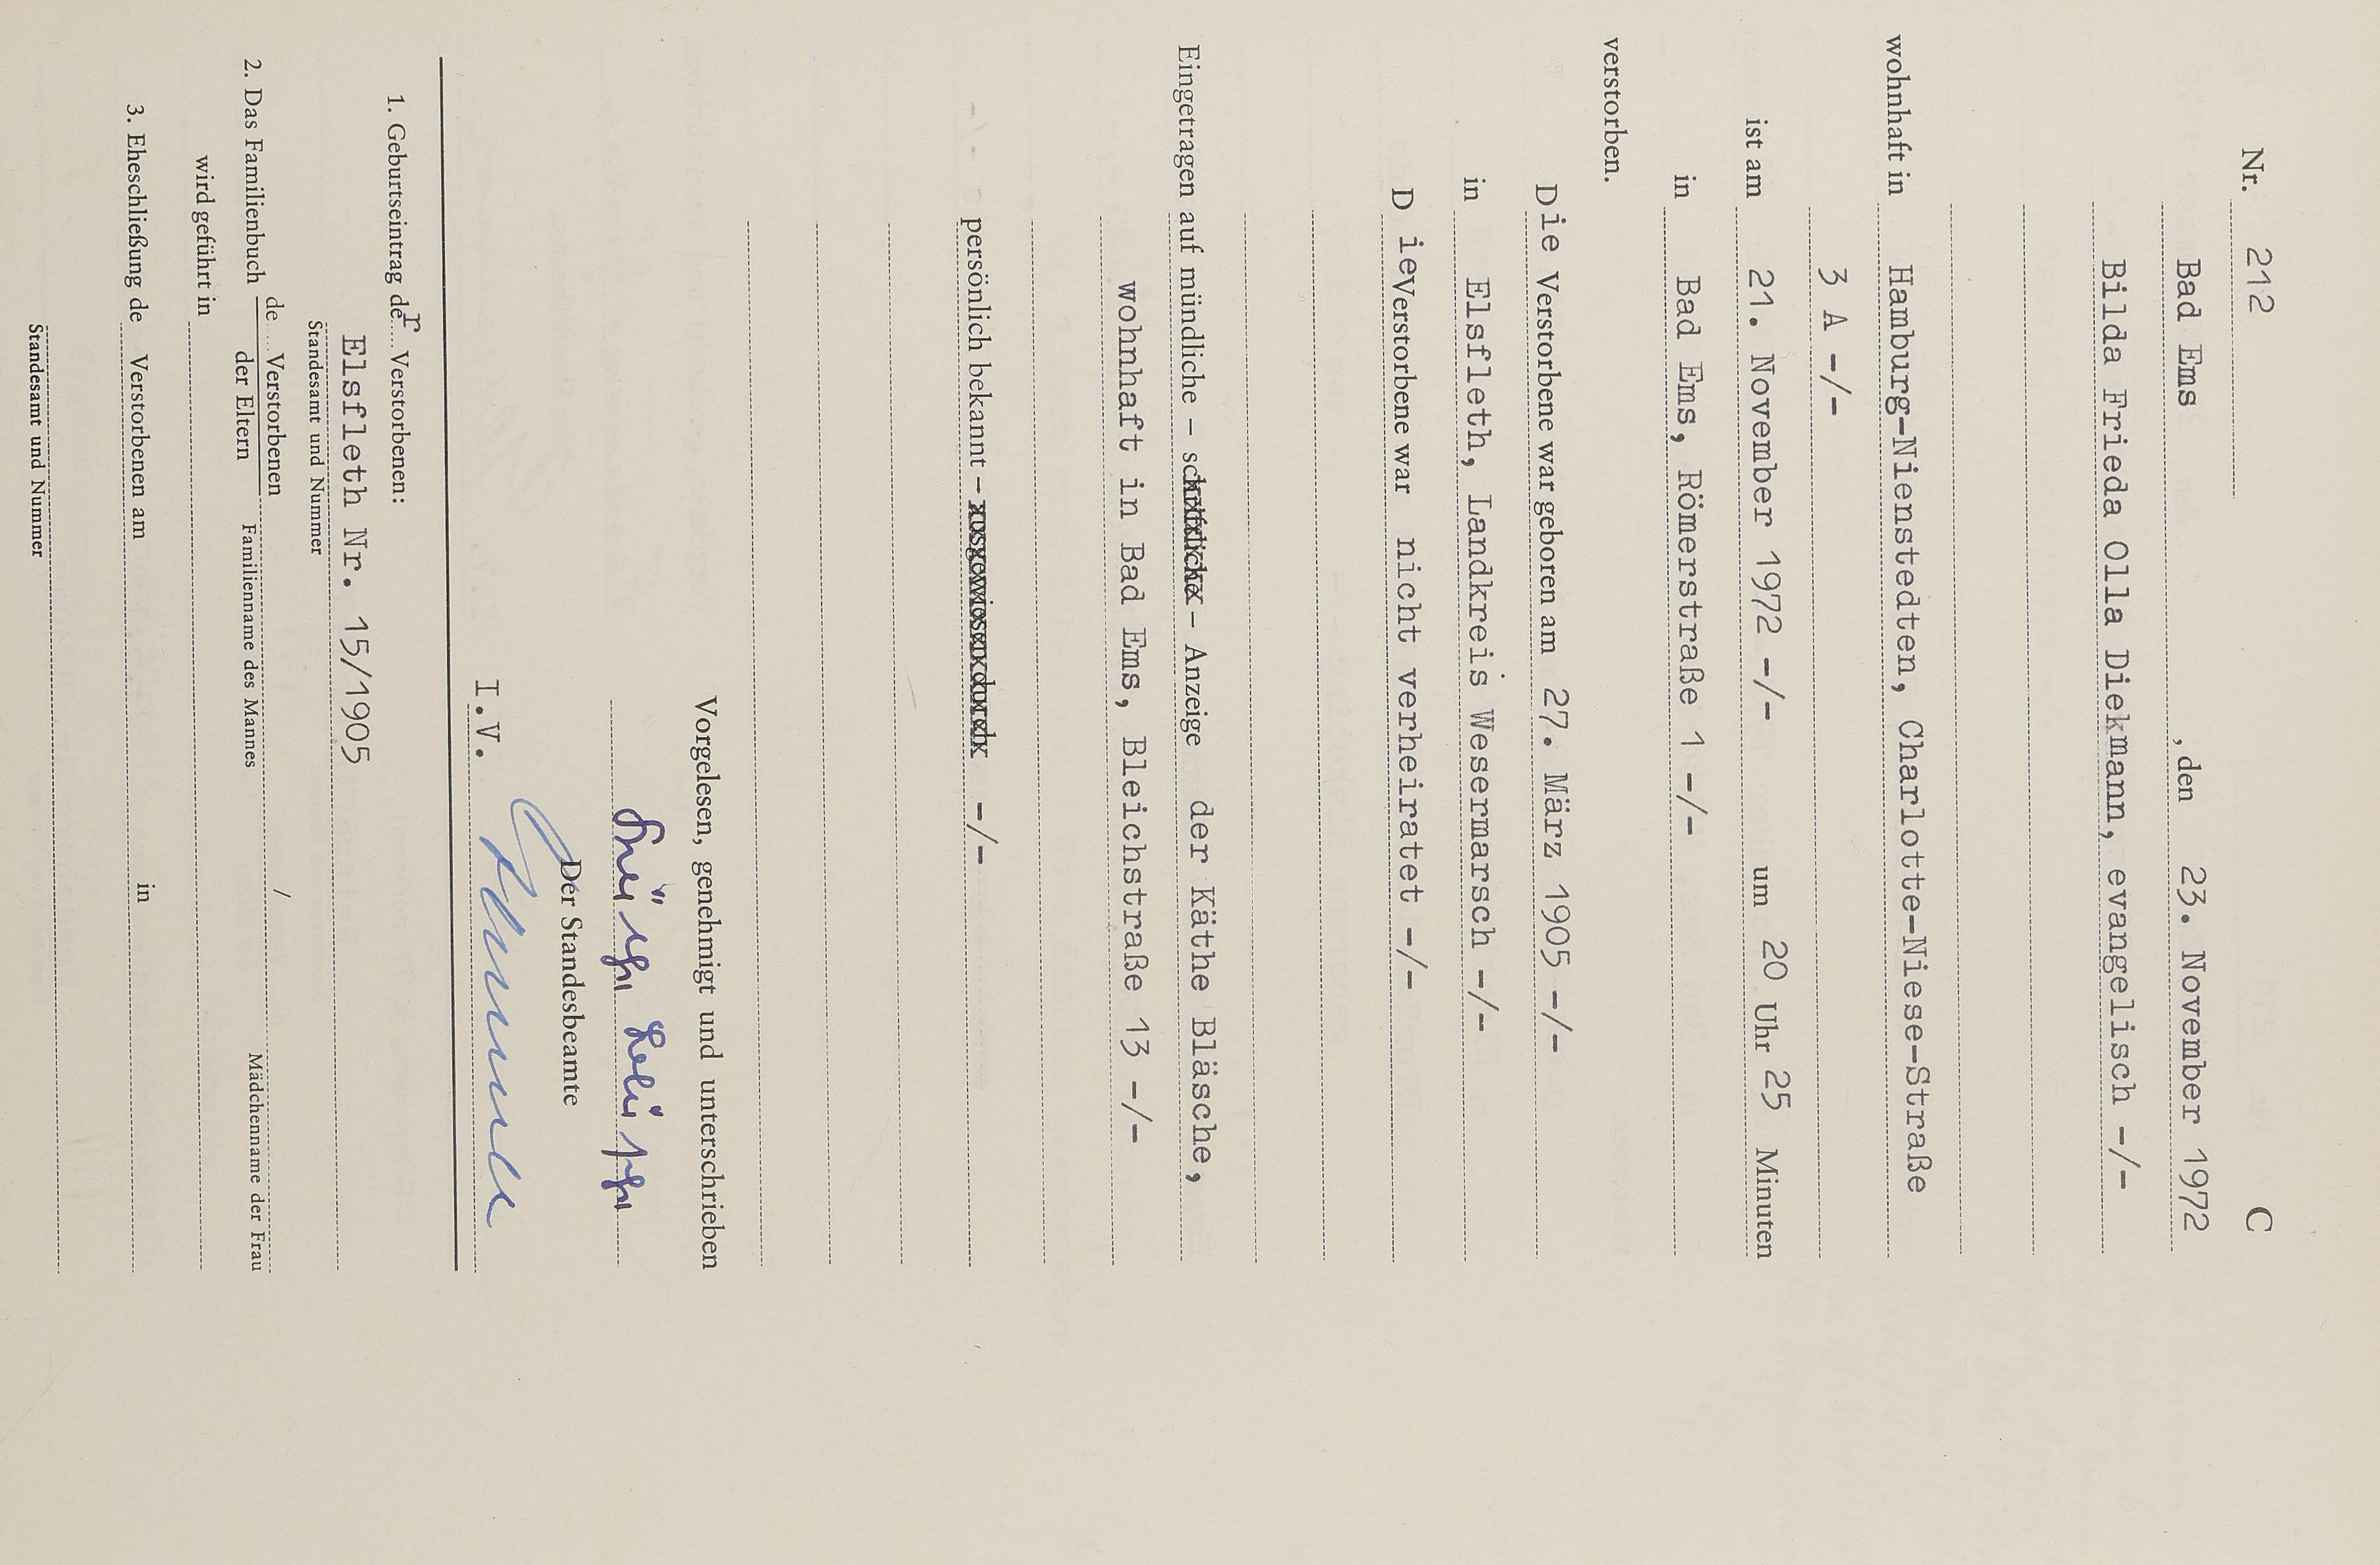 Nr. 212 C
Bad Ems , den 23. November 1972
Bilda Frieda Olla Diekmann, evangelisch -/-
wohnhaft in Hamburg-Nienstedten, Charlotte-Niese-Straße
3 A -/-
ist am 21. November 1972 -/- um 20 Uhr 25 Minuten
in Bad Ems, Römerstraße 1 -/-
verstorben.
Die Verstorbene war geboren am 27. März 1905 -/-
in Elsfleth, Landkreis Wesermarsch -/-
D ie Verstorbene war nicht verheiratet -/-
Eingetragen auf mündliche – schriftliche – Anzeige der Käthe Bläsche,
wohnhaft in Bad Ems, Bleichstraße 13 -/-
persönlich bekannt – ausgewiesen durch -/-
Vorgelesen, genehmigt und unterschrieben
Der Standesbeamte
I.V.
1. Geburtseintrag der Verstorbenen:
Elsfleth Nr. 15/1905
Standesamt und Nummer
2. Das Familienbuch de Verstorbenen /
der Eltern Familienname des Mannes Mädchenname der Frau
wird geführt in
3. Eheschließung de Verstorbenen am in
Standesamt und Nummer